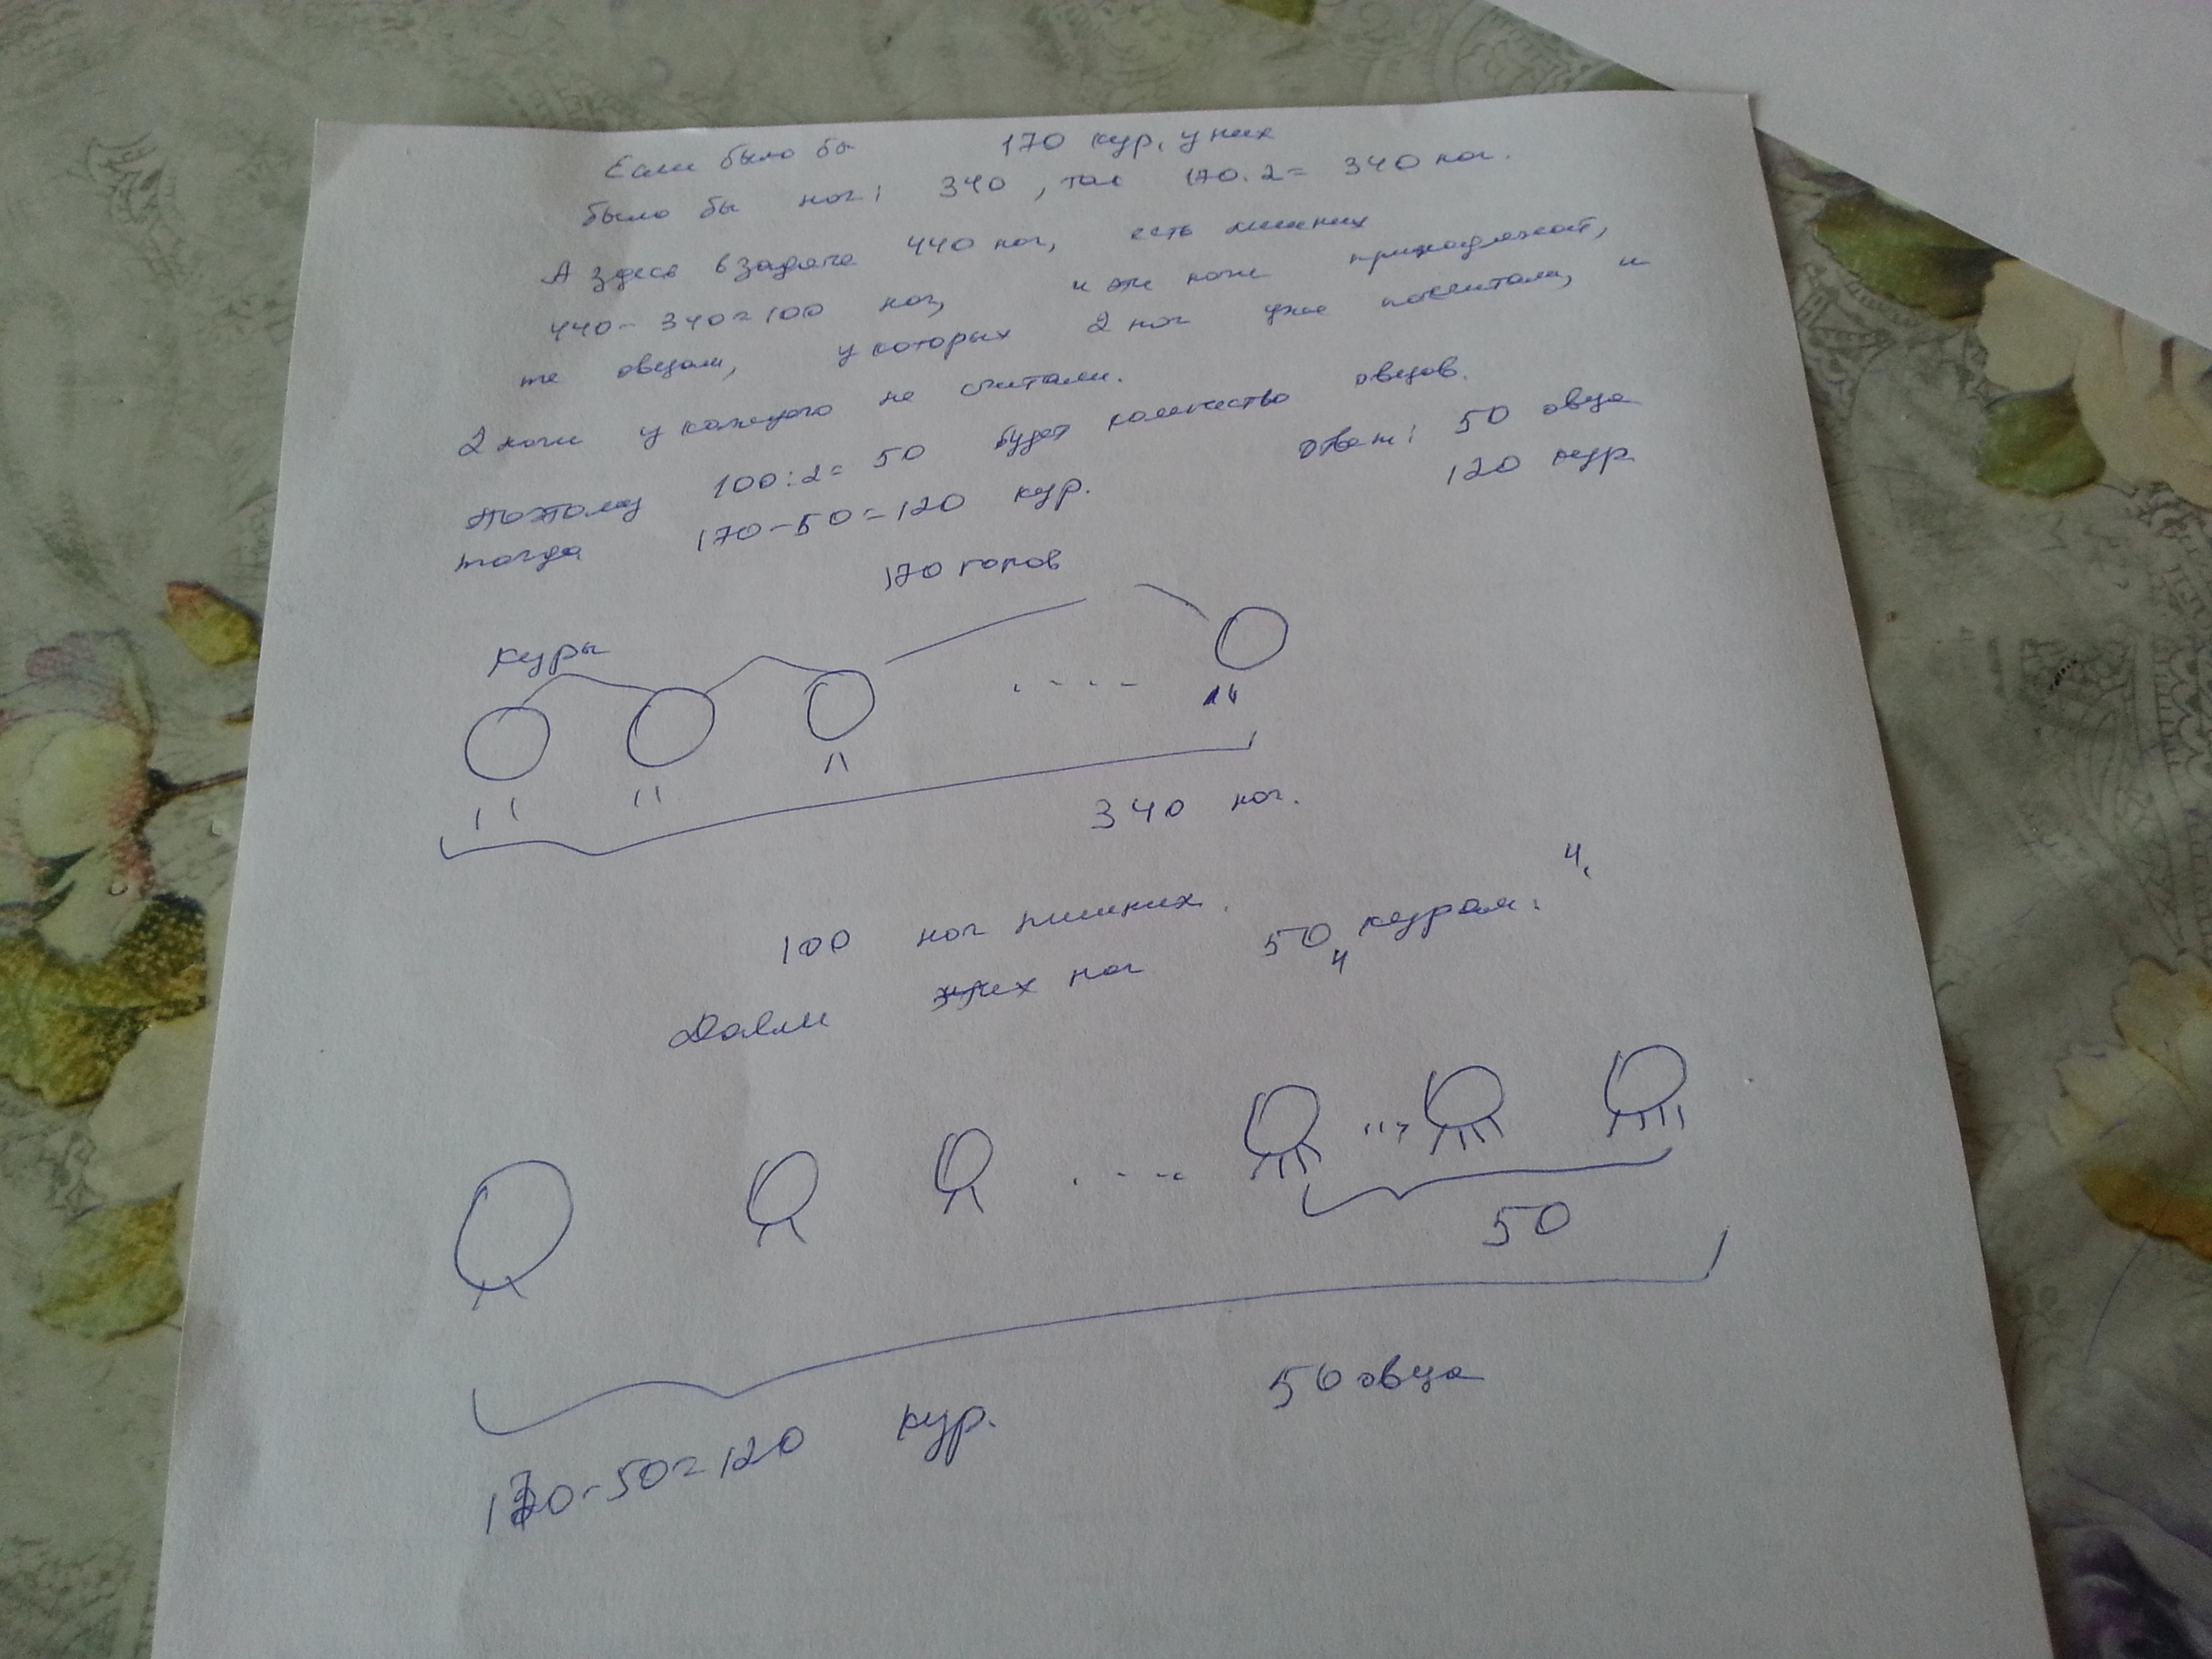 Если было бы 170 кур, у них
было бы ног: 340, так 170.2= 340 ног.
А здесь в задаче 440 ног, есть лишних
440-340=100 ног, и эти ноги принадлежат,
те овцам, у которых 2 ног уже посчитали, и
2 ноги у каждого не считали.
Поэтому 100:2= 50 будет количество овцов.
тогда 170-50=120 кур.
Ответ: 50 овца
120 кур
170 голов
куры
340 ног.
100 ног лишних.
Дали ног 50 курам.
50
170-50=120 кур.
50 овца